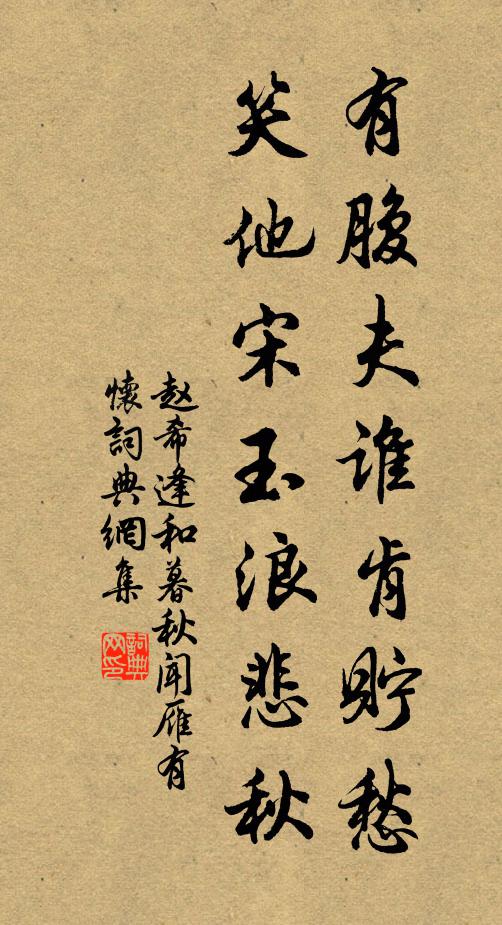 有腹夫谁肯貯愁
笑他宋玉浪悲秋
赵希逢和暮秋闻雁有
懷詞典網集
詞典网印